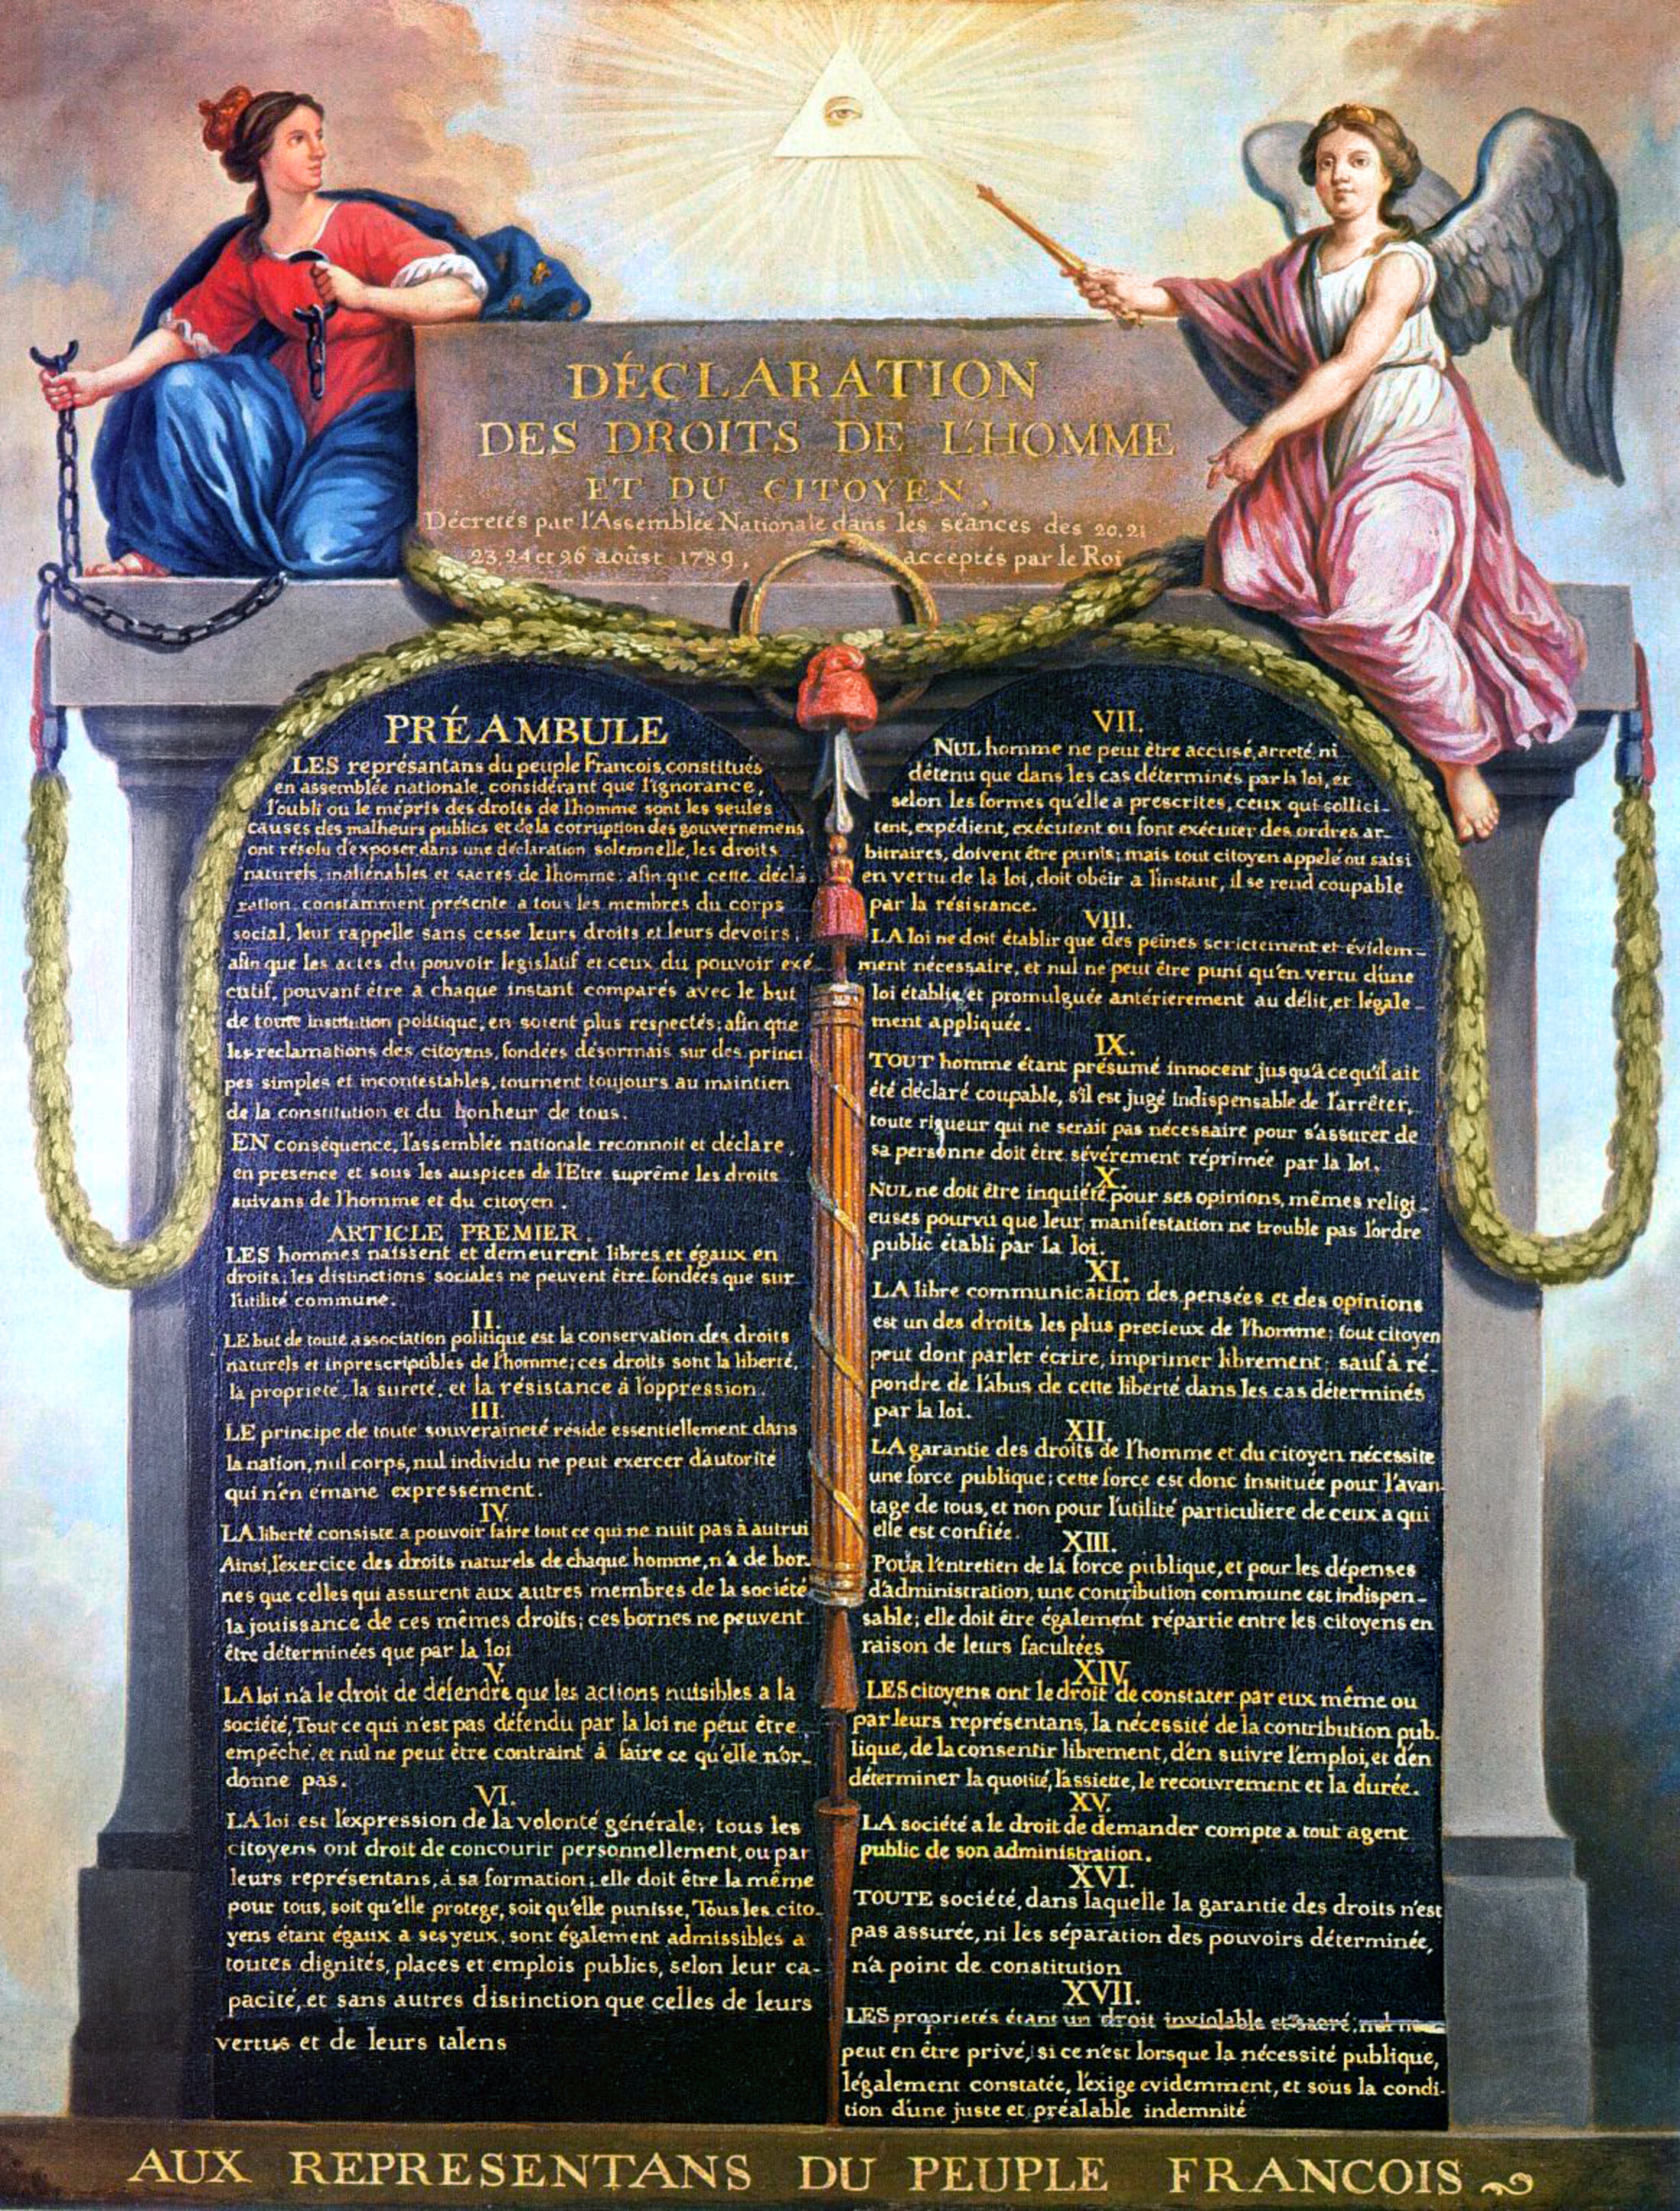 DÉCLARATION
DES DROITS DE L'HOMME
ET DU CITOYEN,
Décretés par l'Assemblée Nationale dans les séances des 20, 21
23, 24 et 26 août 1789, acceptés par le Roi
PRÉAMBULE
LES représantans du peuple Francois, constitués
en assemblée nationale, considérant que l'ignorance,
l'oubli ou le mépris des droits de l'homme sont les seules
causes des malheurs publics et de la corruption des gouvernemens
ont résolu d'exposer dans une déclaration solemnelle, les droits
naturels, inaliénables et sacrés de l'homme: afin que cette décla
ration constamment présente a tous les membres du corps
social, leur rappelle sans cesse leurs droits et leurs devoirs,
afin que les actes du pouvoir legislatif et ceux du pouvoir exé
cutif, pouvant être à chaque instant comparés avec le but
de toute institution politique, en soient plus respectés; afin que
les reclamations des citoyens, fondées désormais sur des princi
pes simples et incontestables, tournent toujours au maintien
de la constitution et du bonheur de tous.
EN conséquence, l'assemblée nationale reconnoit et déclare,
en presence et sous les auspices de l'Etre suprême les droits
suivans de l'homme et du citoyen.
ARTICLE PREMIER.
LES hommes naissent et demeurent libres et égaux en
droits; les distinctions sociales ne peuvent être fondées que sur
l'utilité commune.
II.
LE but de toute association politique est la conservation des droits
naturels et inprescriptibles de l'homme; ces droits sont la liberté,
la propriete, la sureté, et la résistance à l'oppression.
III.
LE principe de toute souveraineté réside essentiellement dans
la nation, nul corps, nul individu ne peut exercer d'autorité
qui n'en émane expressement.
IV.
LA liberté consiste a pouvoir faire tout ce qui ne nuit pas à autrui
Ainsi, l'exercice des droits naturels de chaque homme, n'a de bor-
nes que celles qui assurent aux autres membres de la société
la jouissance de ces mêmes droits; ces bornes ne peuvent
être déterminées que par la loi
V.
LA loi n'a le droit de défendre que les actions nuisibles a la
société, Tout ce qui n'est pas défendu par la loi ne peut être
empêché, et nul ne peut être contraint à faire ce qu'elle n'or-
donne pas.
VI.
LA loi est l'expression de la volonté générale; tous les
citoyens ont droit de concourir personnellement, ou par
leurs représentans, à sa formation; elle doit être la même
pour tous, soit qu'elle protege, soit qu'elle punisse, Tous les cito-
yens étant égaux a ses yeux, sont également admissibles a
toutes dignités, places et emplois publics, selon leur ca-
pacité, et sans autres distinction que celles de leurs
vertus et de leurs talens
VII.
NUL homme ne peut être accusé, arreté, ni
détenu que dans les cas déterminés par la loi, et
selon les formes qu'elle a prescrites, ceux qui sollici-
tent, expédient, exécutent ou font exécuter des ordres ar-
bitraires, doivent être punis; mais tout citoyen appelé ou saisi
en vertu de la loi, doit obéir a l'instant, il se rend coupable
par la résistance.
VIII.
LA loi ne doit établir que des peines strictement et évidem-
ment nécessaire, et nul ne peut être puni qu'en vertu d'une
loi établie et promulguée antérierement au délit, et légale-
ment appliquée.
IX.
TOUT homme étant présumé innocent jusqu'à ce qu'il ait
été déclaré coupable, s'il est jugé indispensable de l'arrêter,
toute rigueur qui ne serait pas nécessaire pour s'assurer de
sa personne doit être sévérement réprimée par la loi.
X.
NUL ne doit être inquiété pour ses opinions, mêmes religi-
euses pourvu que leur manifestation ne trouble pas l'ordre
public établi par la loi.
XI.
LA libre communication des pensées et des opinions
est un des droits les plus precieux de l'homme; tout citoyen
peut dont parler écrire, imprimer librement; sauf à ré-
pondre de l'abus de cette liberté dans les cas déterminés
par la loi.
XII.
LA garantie des droits de l'homme et du citoyen nécessite
une force publique; cette force est donc instituée pour l'avan-
tage de tous, et non pour l'utilité particuliere de ceux a qui
elle est confiée.
XIII.
POUR l'entretien de la force publique, et pour les dépenses
d'administration, une contribution commune est indispen-
sable; elle doit être également répartie entre les citoyens en
raison de leurs facultées
XIV.
LES citoyens ont le droit de constater par eux même ou
par leurs représentans, la nécessité de la contribution pub-
lique, de la consentir librement, d'en suivre l'emploi, et d'en
déterminer la quotité, l'assiette, le recouvrement et la durée.
XV.
LA société a le droit de demander compte a tout agent
public de son administration.
XVI.
TOUTE société, dans laquelle la garantie des droits n'est
pas assurée, ni les séparation des pouvoirs déterminée,
n'a point de constitution
XVII.
LES proprietés étant un droit inviolable et sacré, nul ne
peut en être privé, si ce n'est lorsque la nécessité publique,
légalement constatée, l'exige evidemment, et sous la condi-
tion d'une juste et préalable indemnité
AUX REPRESENTANS DU PEUPLE FRANCOIS